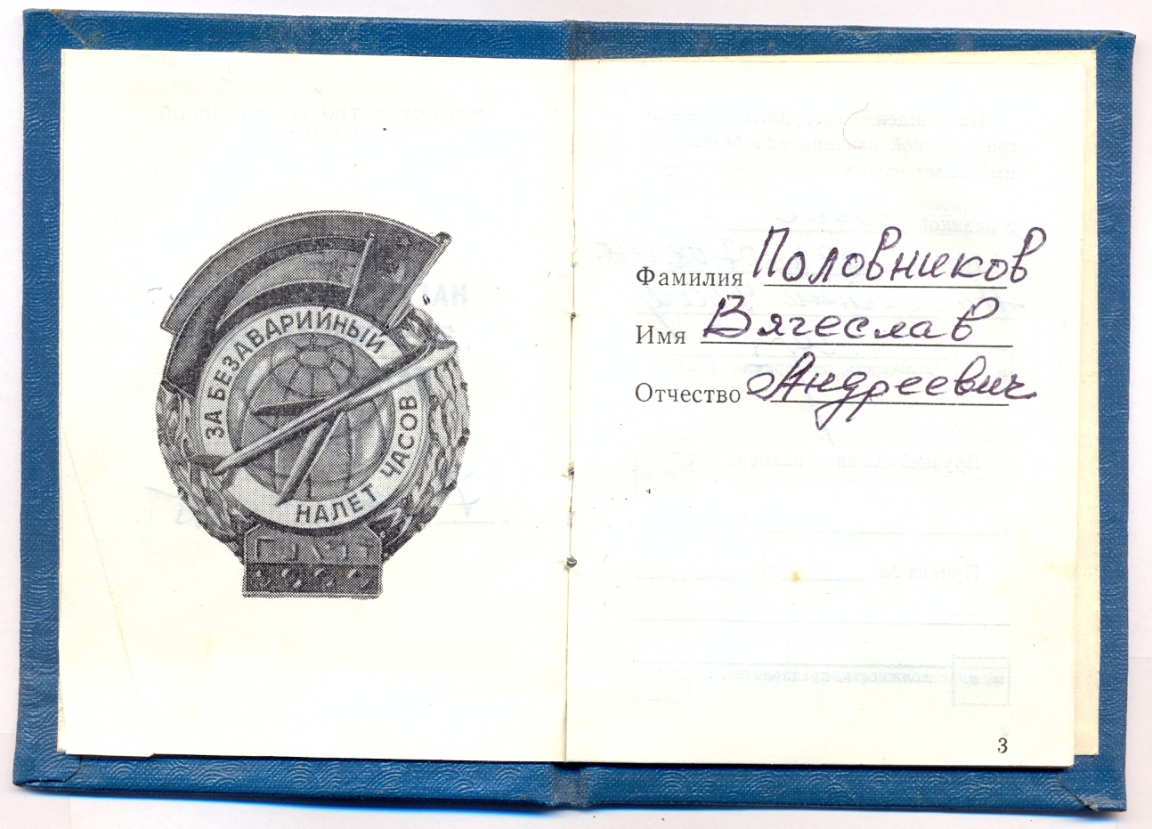 ЗА БЕЗАВАРИЙНЫЙ
НАЛЕТ ЧАСОВ
Фамилия Половников
Имя Вячеслав
Отчество Андреевич
3